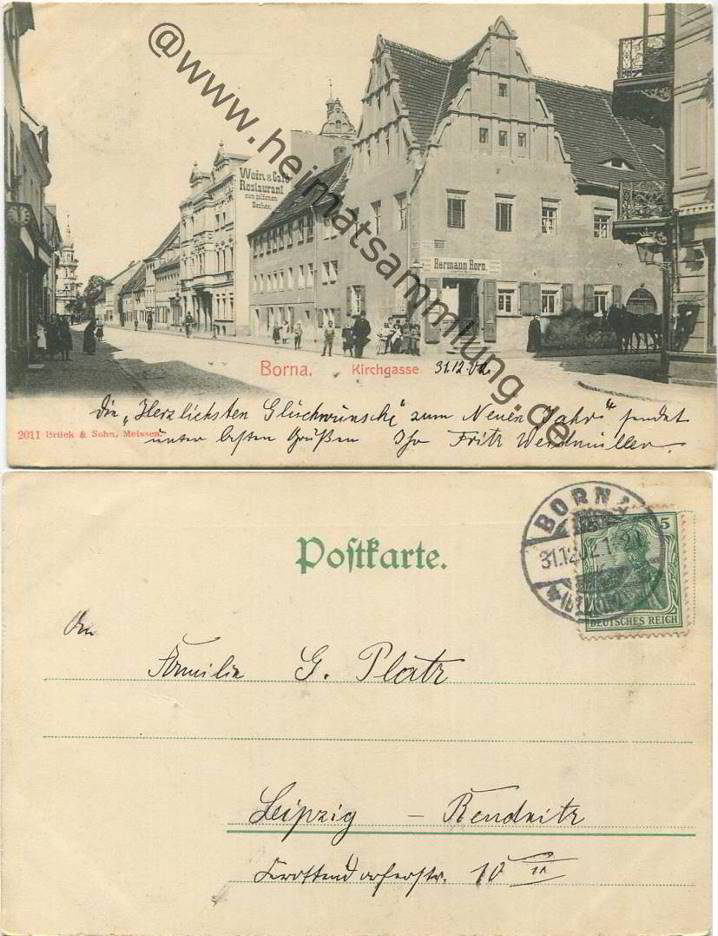 @www.heimatsammlung.de
Wein & Café
Restaurant
zum goldenen
Becher.
Hermann Horn.
Borna. Kirchgasse 31.12.02.
Die „Herzlichsten Glückwünsche“ zum Neuen Jahr sendet
unter besten Grüßen Ihr Fritz Werdmüller.
2011 Brück & Sohn, Meissen.
Postkarte.
BORNA
31.12.02.
5
DEUTSCHES REICH
An
Familie G. Platz
Leipzig – Reudnitz
10 II